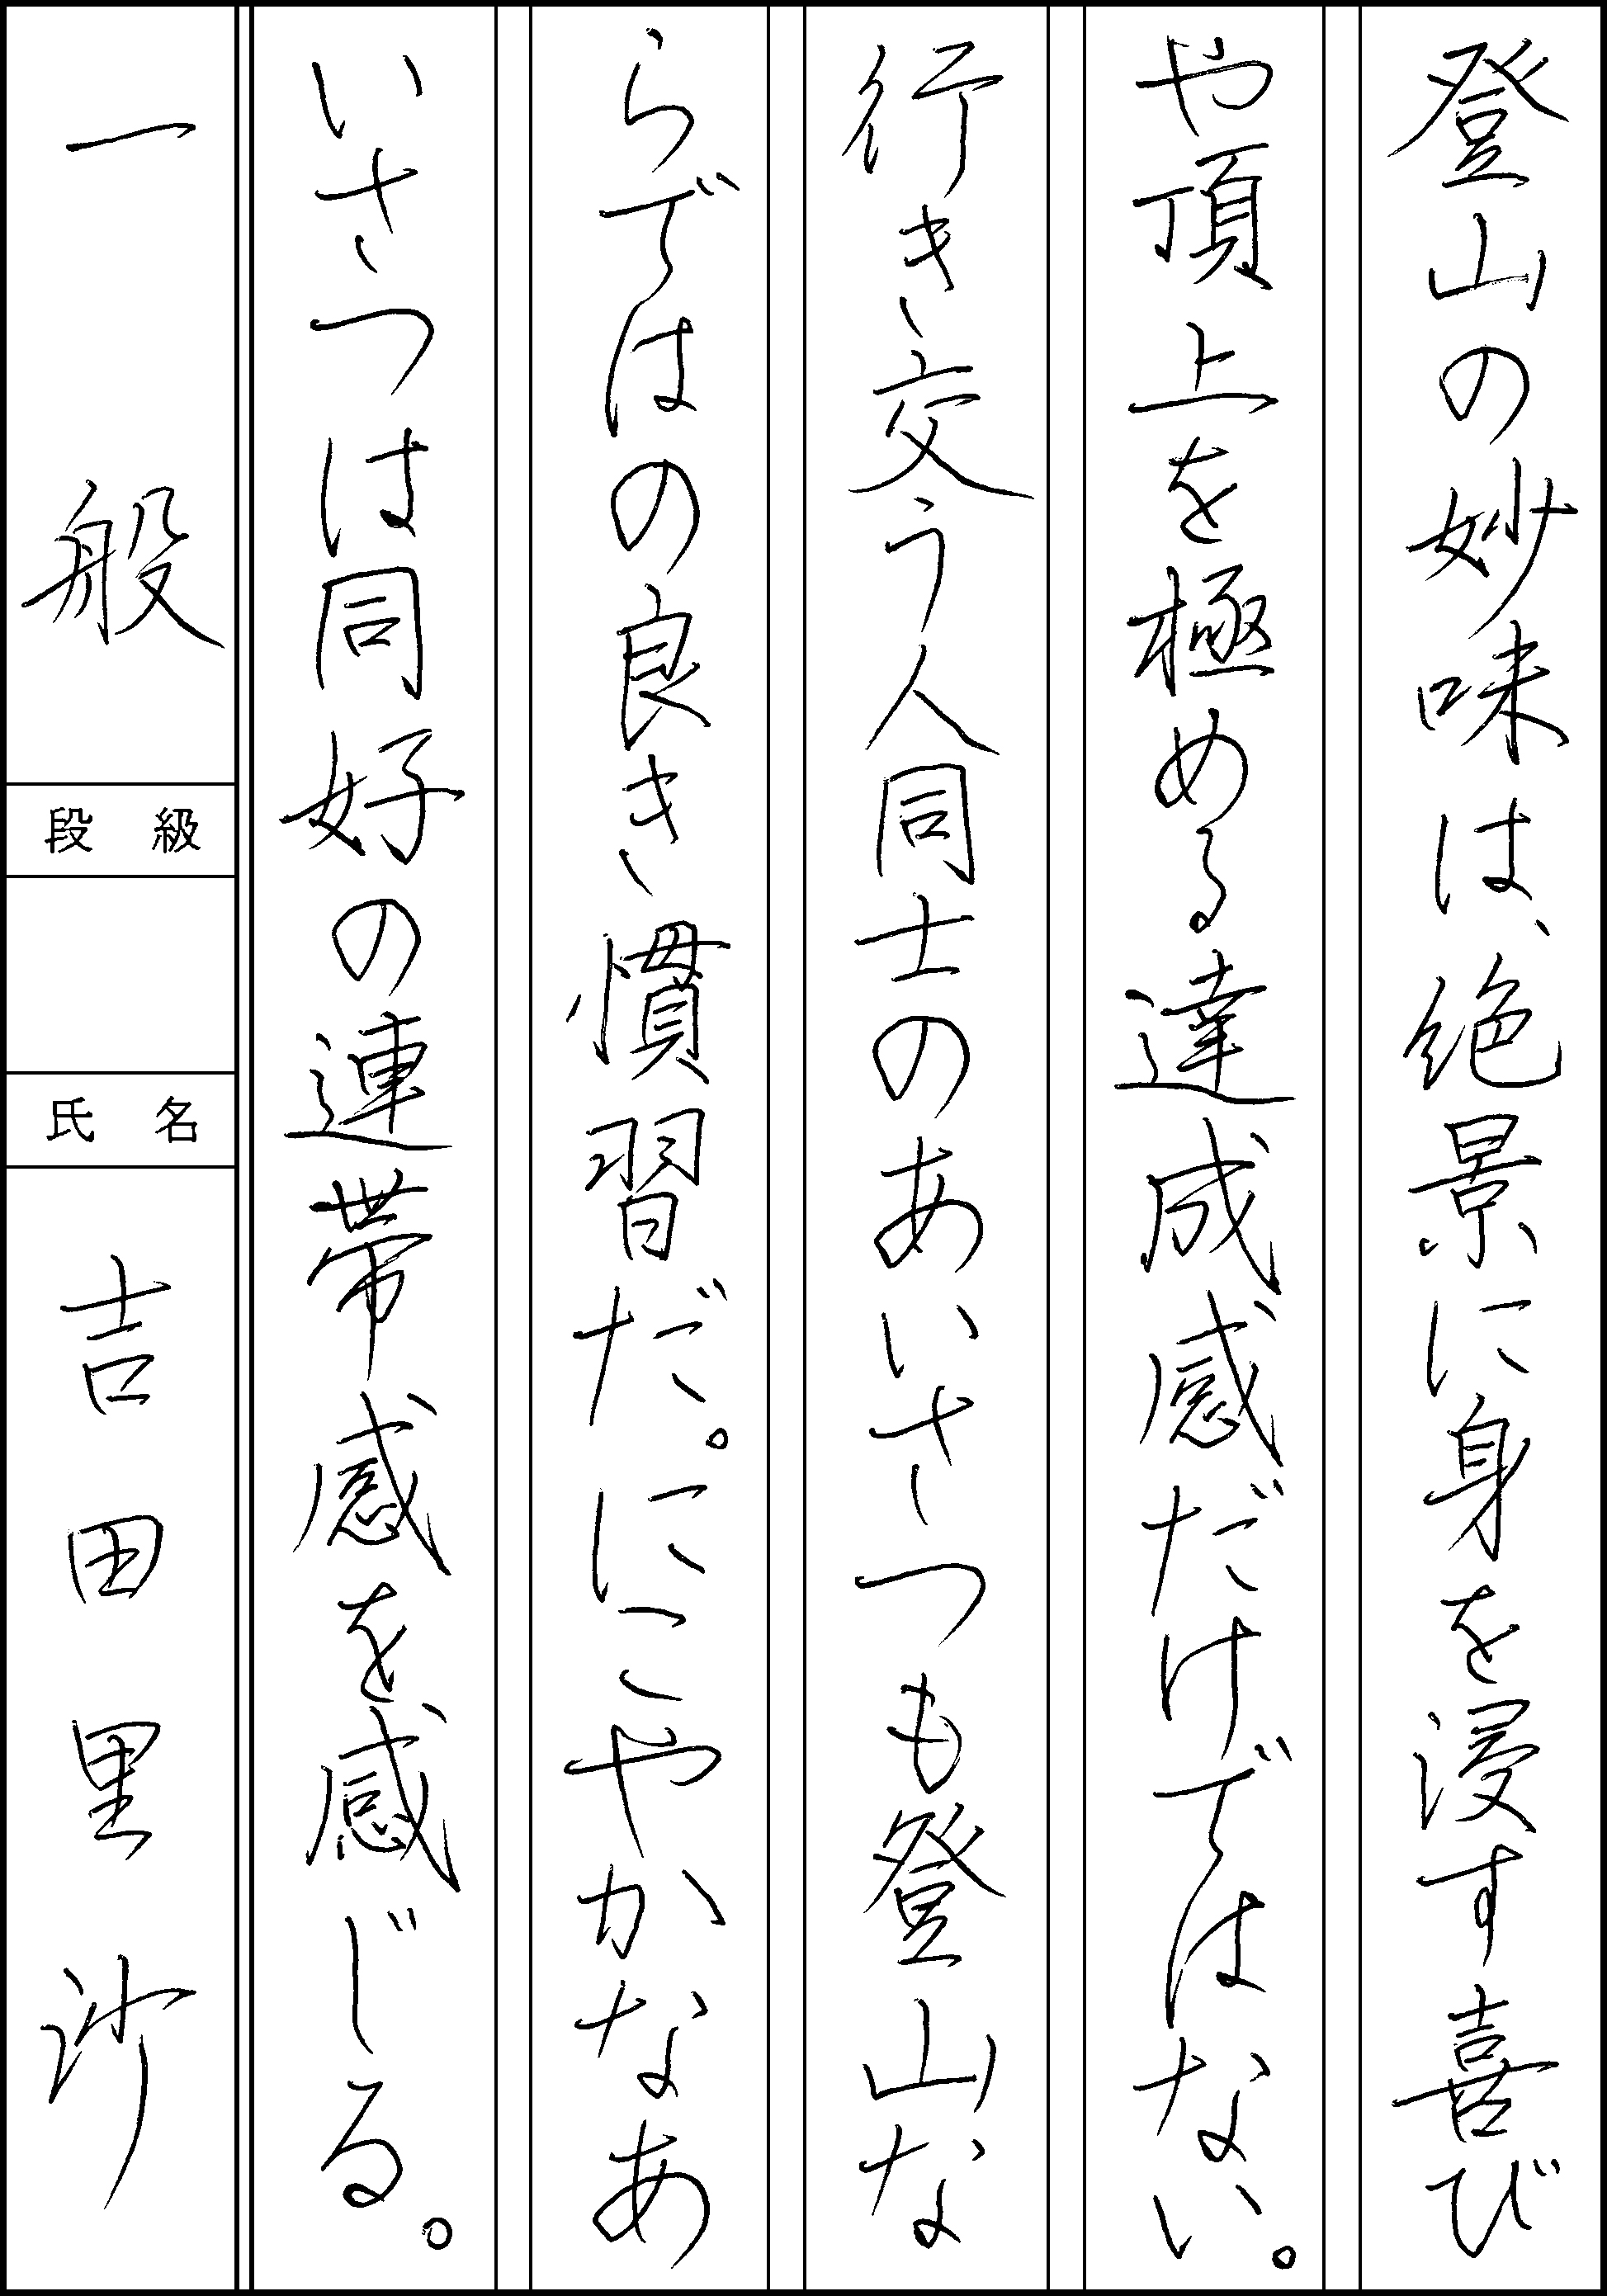 登山の妙味は、絶景に身を浸す喜び
や頂上を極める達成感だけではない。
行き交う人同士のあいさつも登山な
らではの良き慣習だ。にこやかなあ
いさつは同好の連帯感を感じる。
一般
段級
氏名
吉田里沙